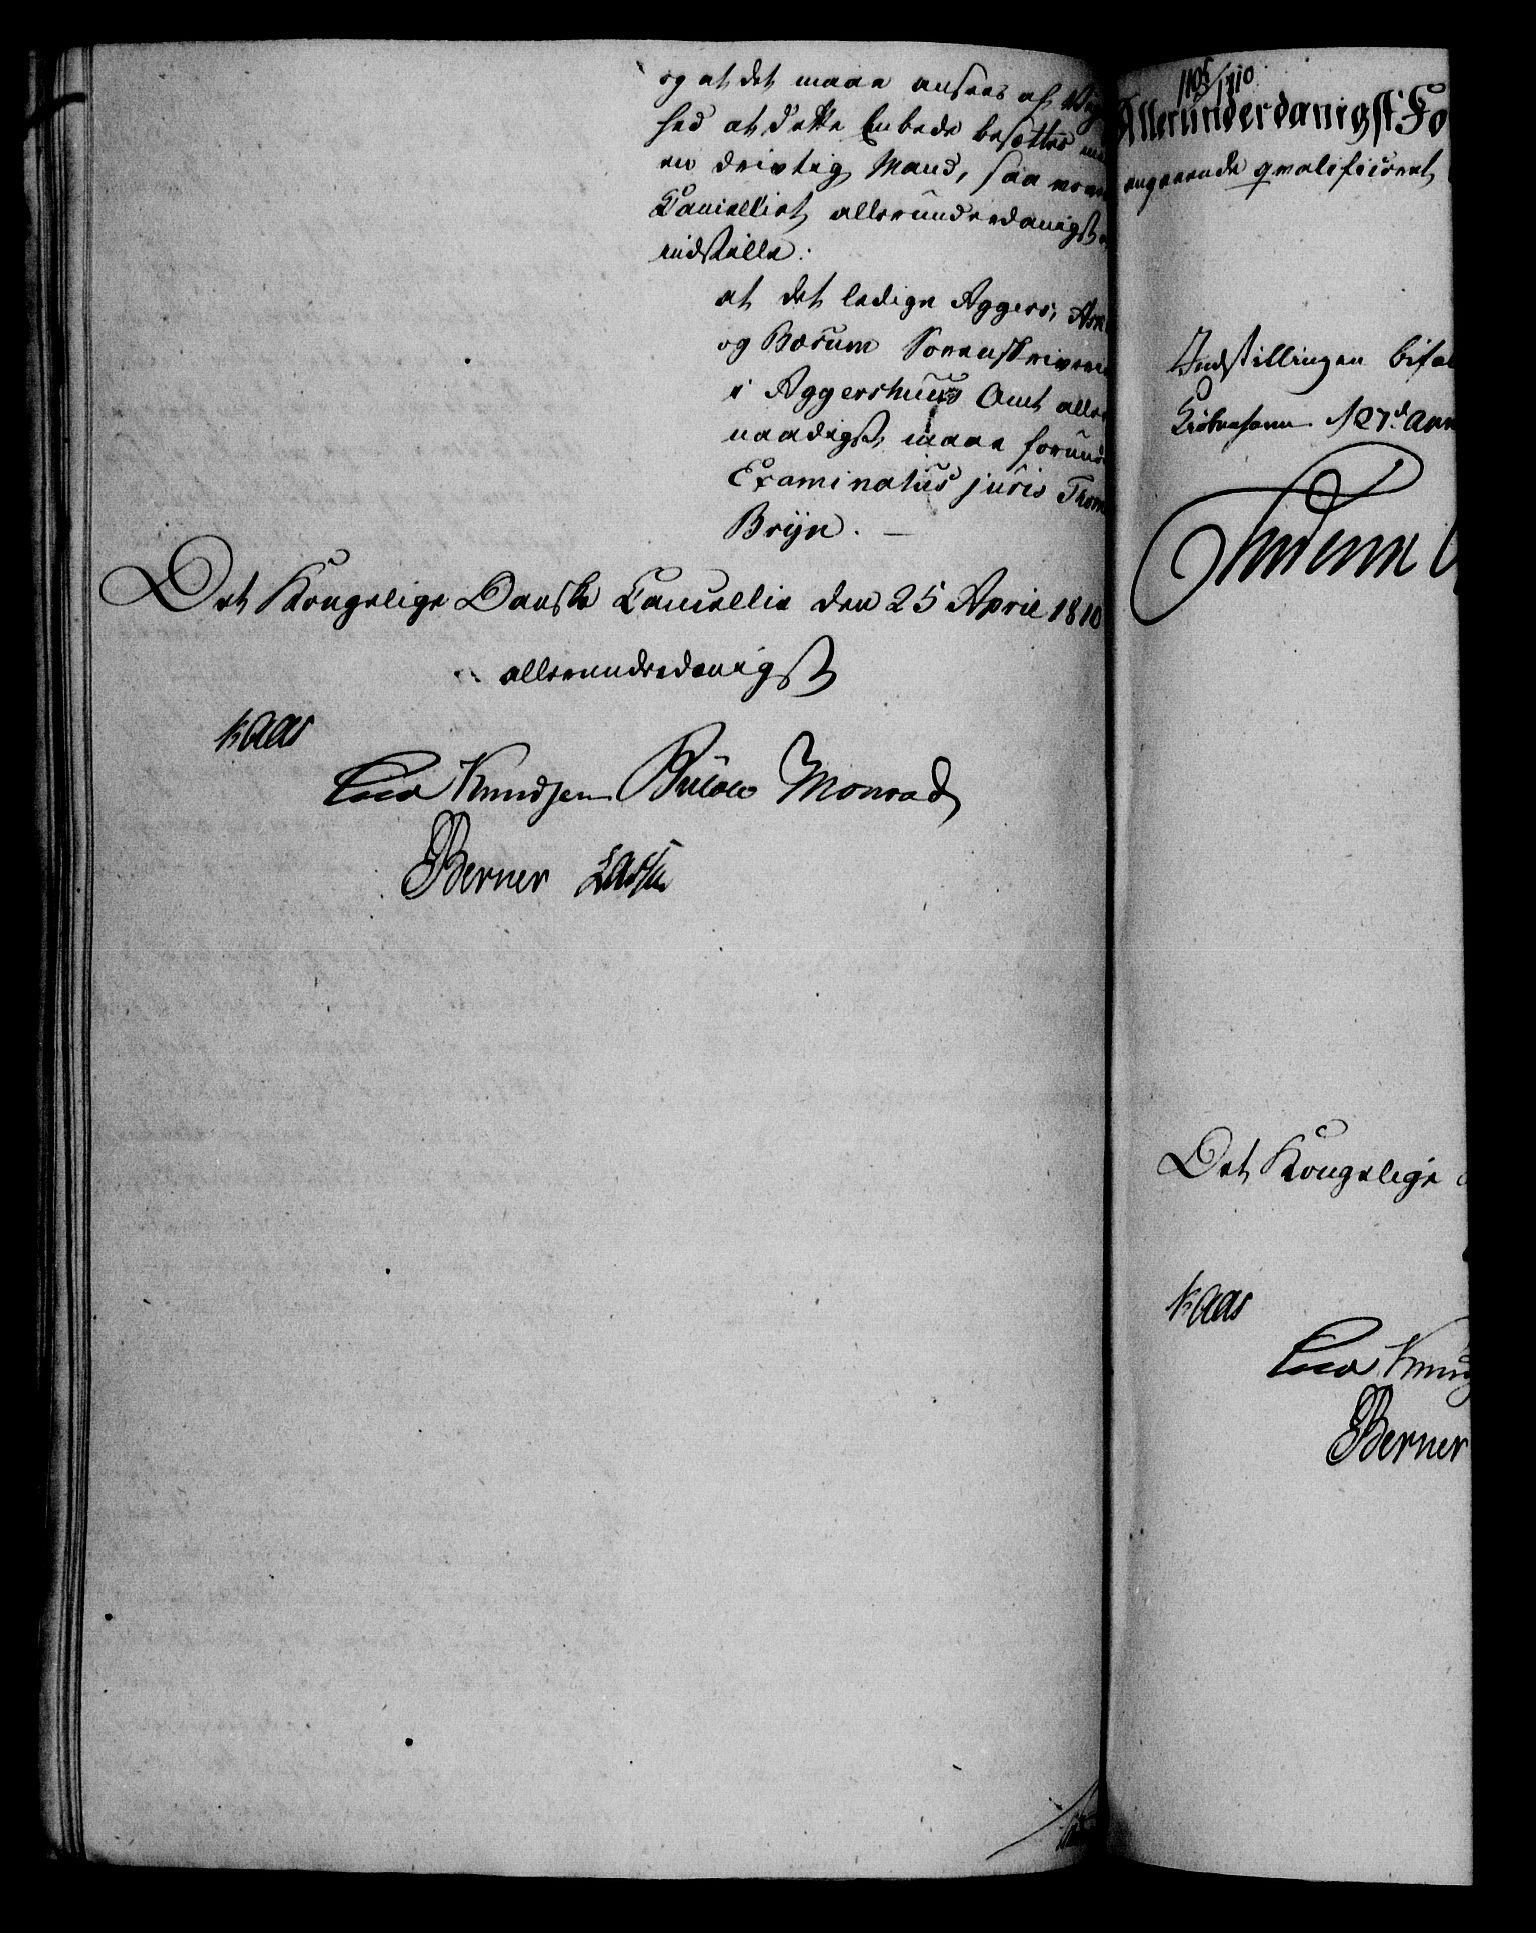 og at det maae ansees af Vig
hed at dette Embede besættes med
en drivtig Mand, saa
Cancelliet allerunderdanigst
indstille:
at det ledige Aggers, Ask
og Bærum Sorenskriverie
i Aggershuus Amt aller
naadigst maae forund
Examinatus juris Thom
Bryn. —
Det Kongelige Danske Cancellie den 25 April 1810
allerunderdanigst
Kaas
Cold Knudsen Bülow Monrad
Berner Lassen
1105/1810
Allerunderdanigst Fo
angaaende qvalificeret
Indstillingen bifal
Kiøbenhavn d 27d
Frederik
Det Kongelige
Kaas
Cold Knud
Berner